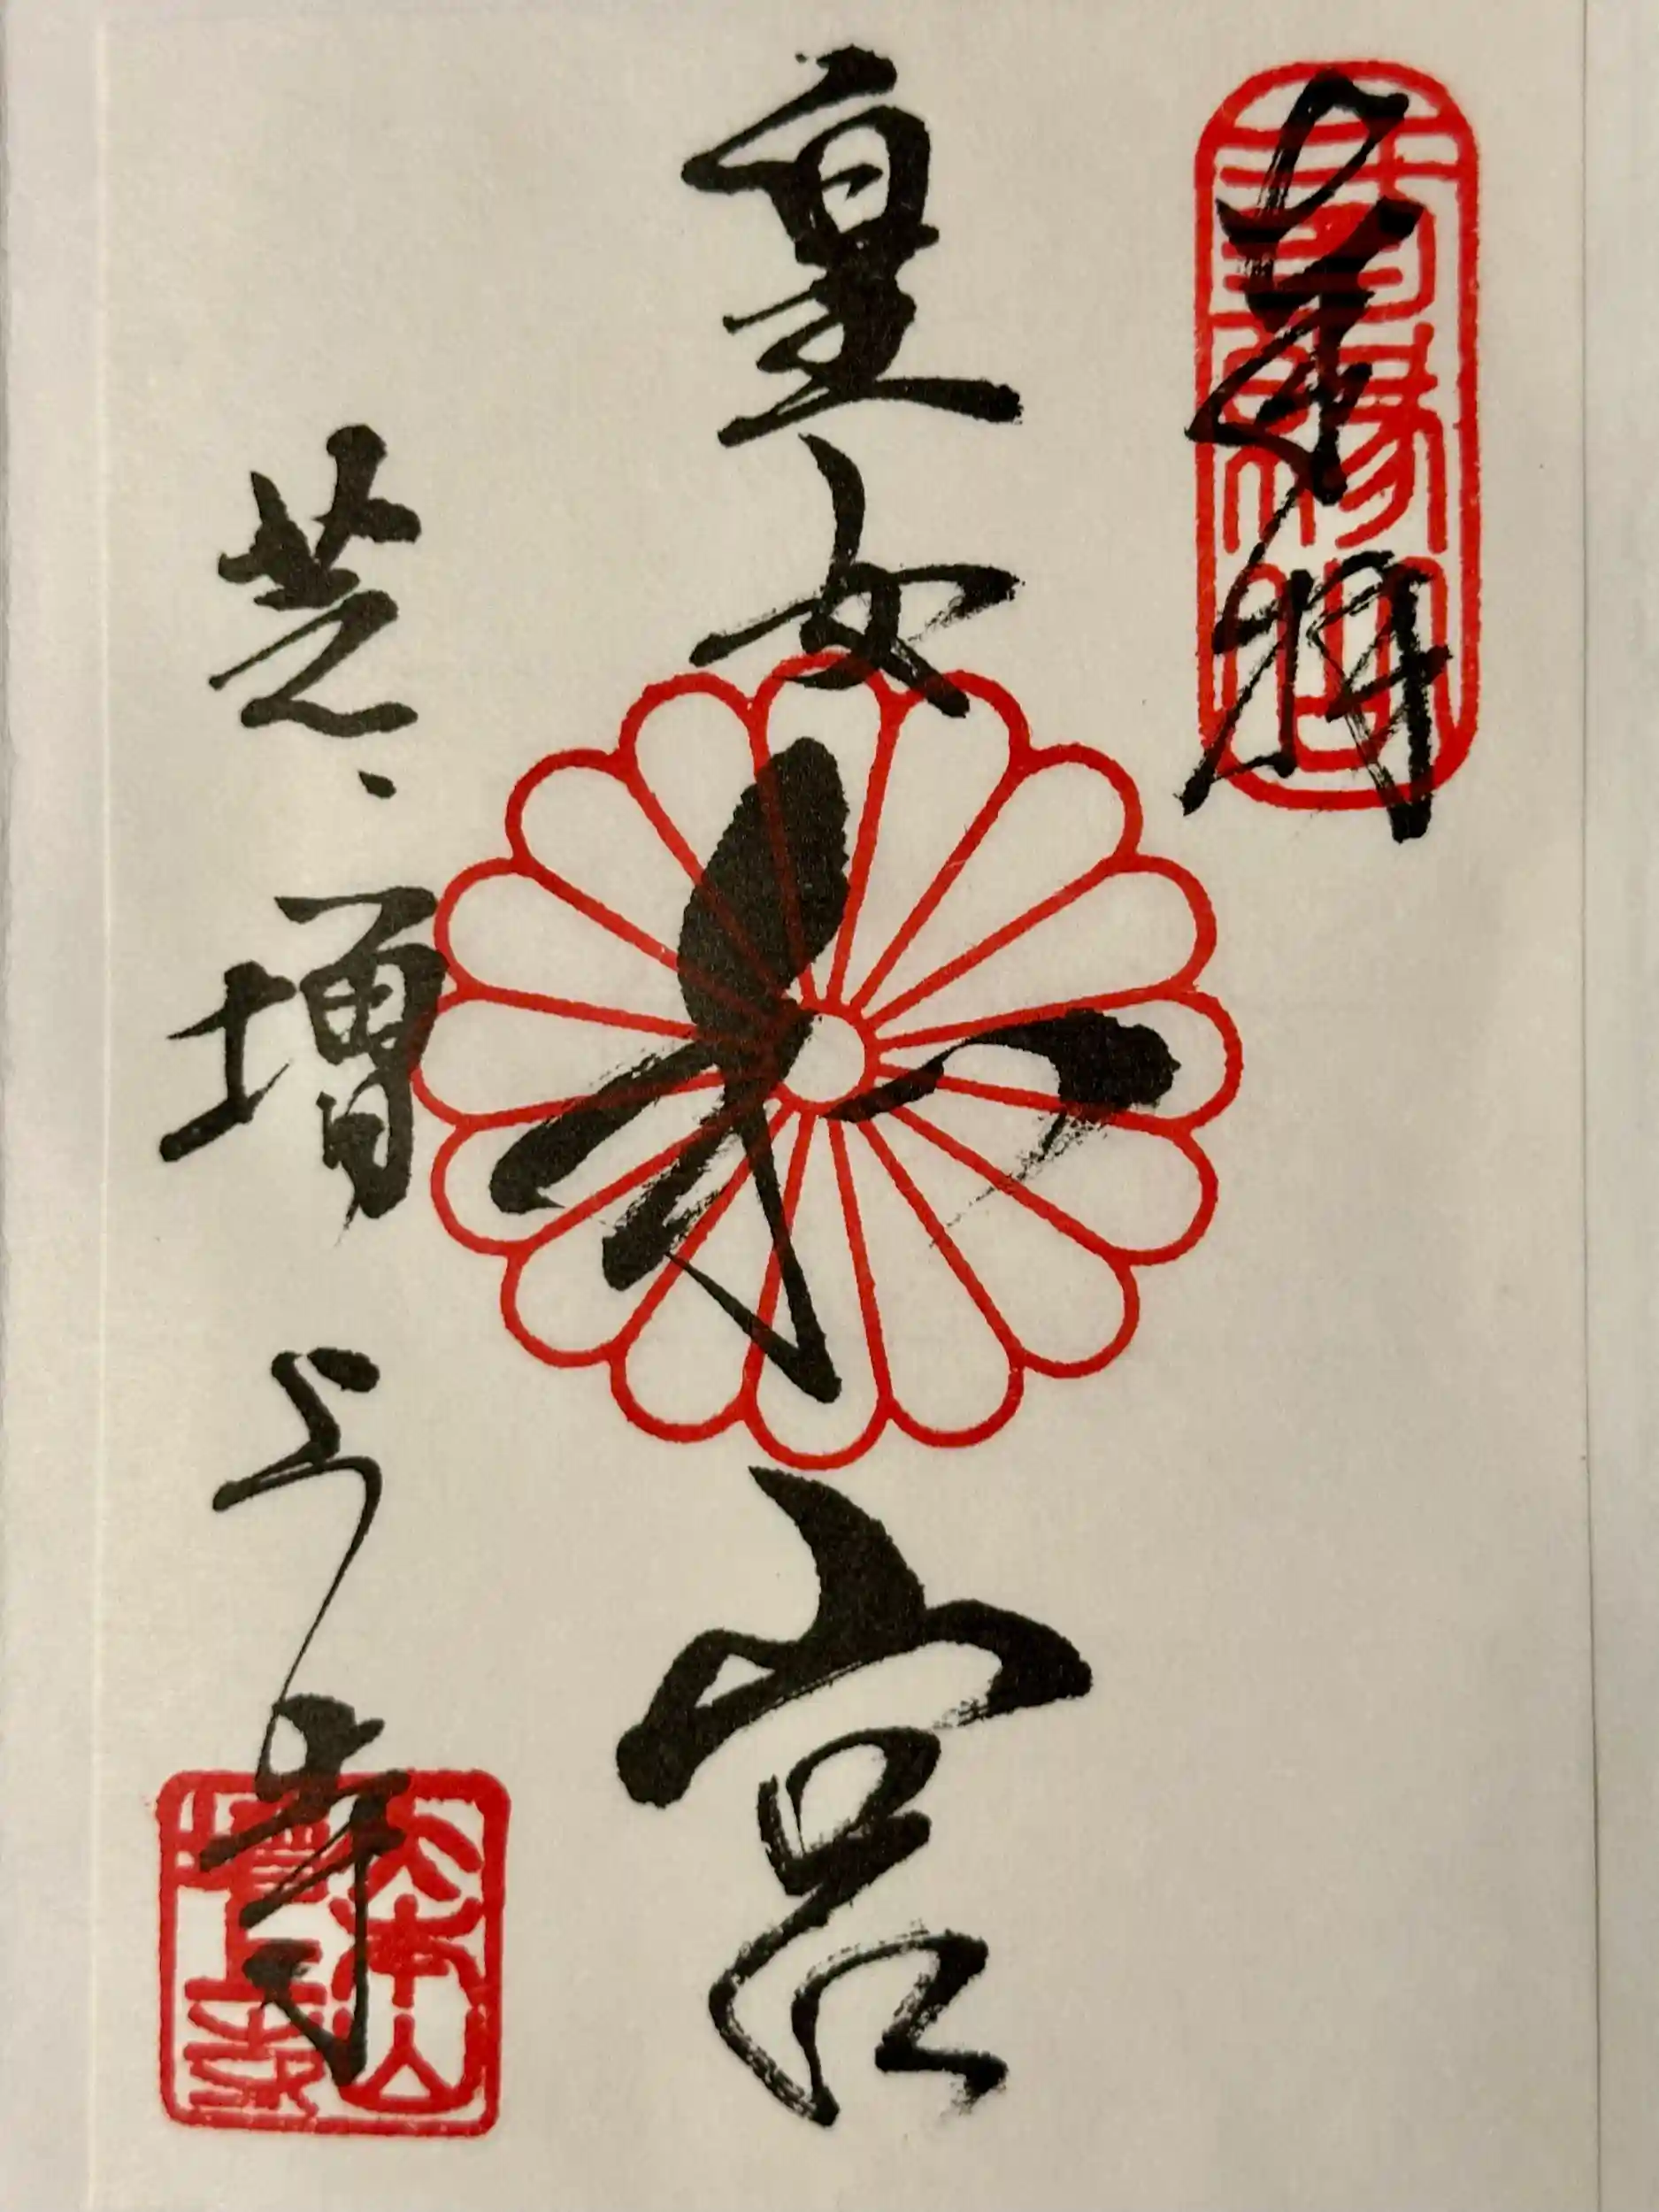 奉拝
皇女
和
宮
芝、増上寺
大本山
増上寺